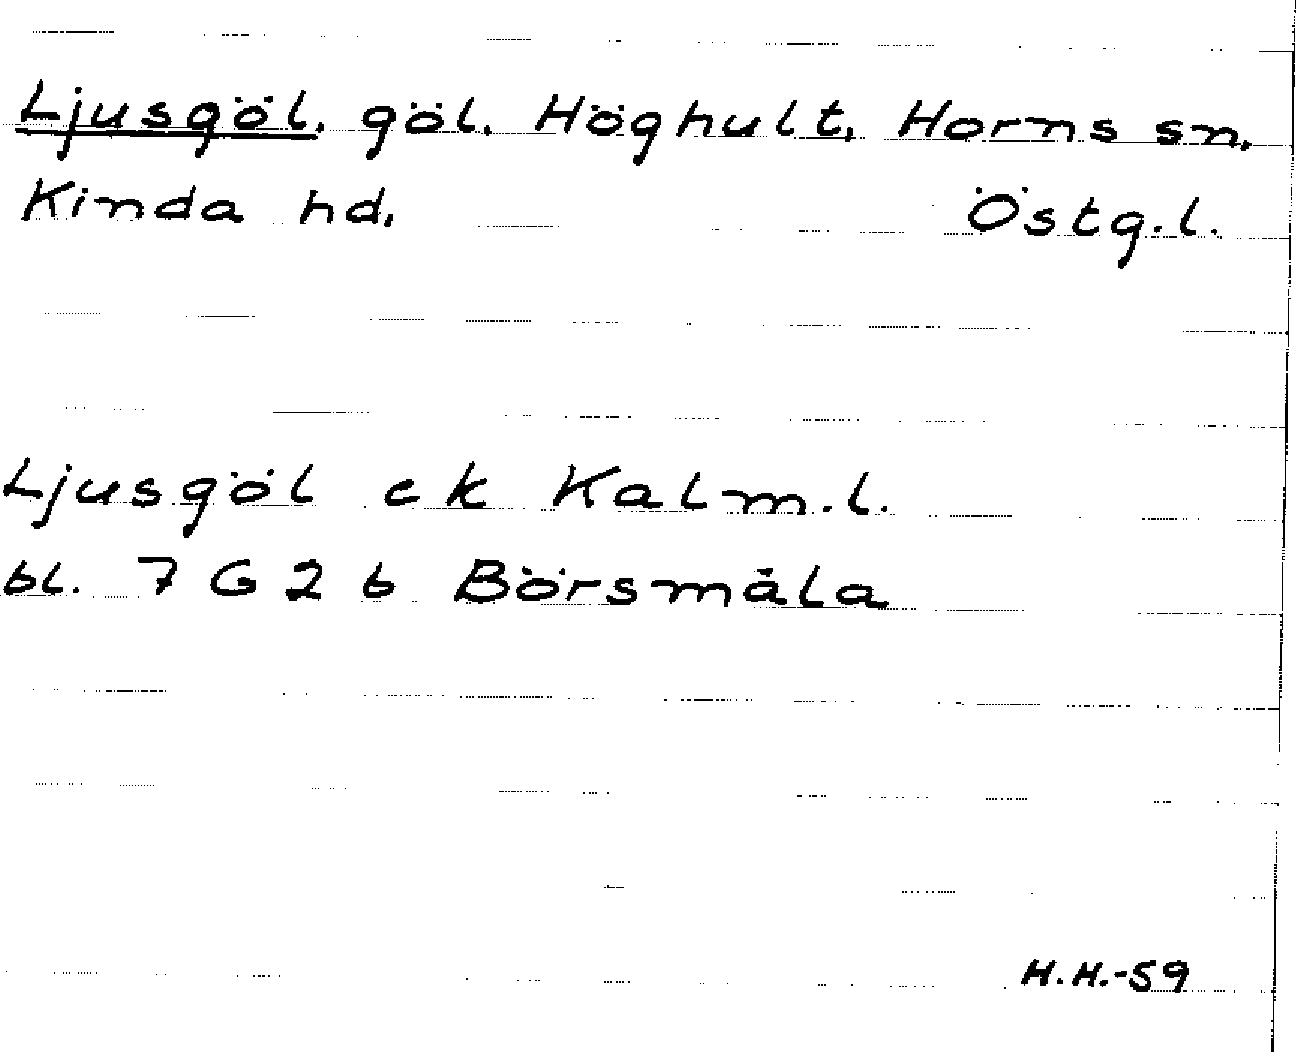 Ljusgöl, göl. Höghult, Horns sn.
Kinda hd. Östg.l.
Ljusgöl ek Kalm.l.
bl. 7 G 2 b Börsmåla
H.H.-59